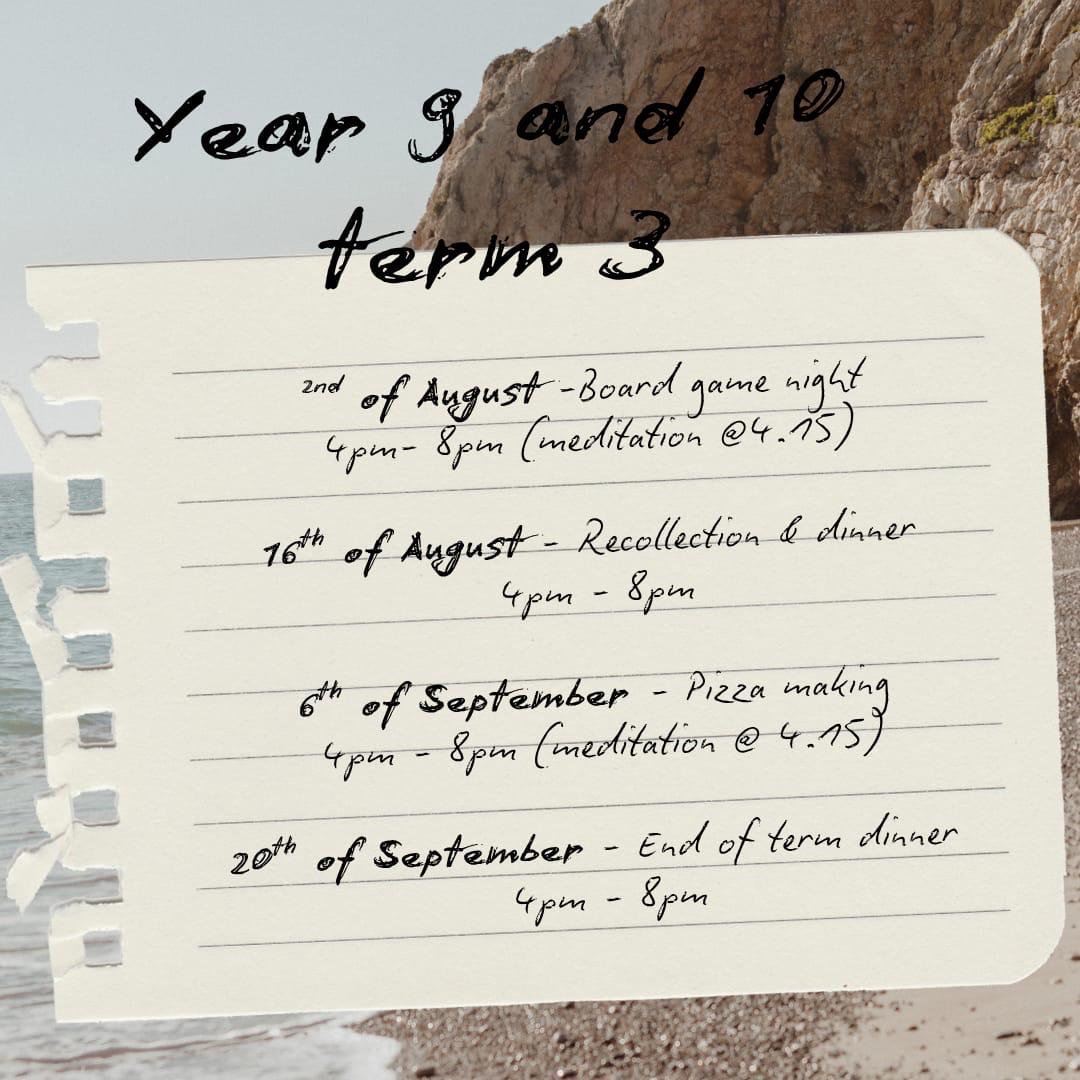 Year 9 and 10
term 3
2nd of August -Board game night
4pm- 8pm (meditation @4.15)
16th of August - Recollection & dinner
4pm - 8pm
6th of September - Pizza making
4pm - 8pm (meditation @ 4.15)
20th of September - End of term dinner
4pm - 8pm